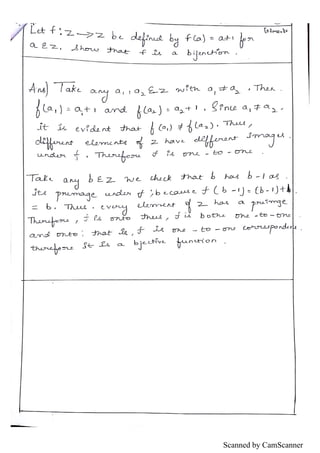 Let f : Z → Z be defined by f(a) = a+1 for
a ∈ Z. show that f is a bijenction.
Ans) Take any a₁, a₂ ∈ Z with a₁ ≠ a₂. Then
f(a₁) = a+1 and f(a₂) = a₂+1. Since a₁ ≠ a₂.
it is evident that f(a₁) ≠ f(a₂). Thus,
different elements of Z have different images
under f. Therefore f is one-to-one.
Take any b ∈ Z we check that b has b-1 as
its preimage under f; because f(b-1) = (b-1)+1
= b. Thus. every element of Z has a preimge
Therefore, f is onto thus, f is bothe one-to-one
and onto: that is, f is one-to-one
therefore it is a bjective funtion.
Scanned by CamScanner